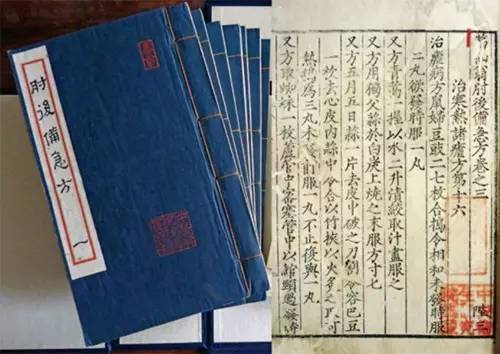 肘後備急方 一
肘後備急方卷之三
治寒熱諸瘧方第十六
治瘧病方鼠婦豆豉二七枚合搗令相和未發時服
二丸欲發時服一丸
又方青蒿一握以水二升漬絞取汁盡服之
又方用獨父蒜於白炭上燒之末服方寸七
又方五月五日蒜一片去皮中破之刀割令容巴豆
一枚去心皮內蒜中令合以竹挾以火炙之取可
熱搗為三丸未發前服一丸不止復與一丸
又方取蜘蛛一枚蘆管中密塞管中以綰頸過發時
陞三